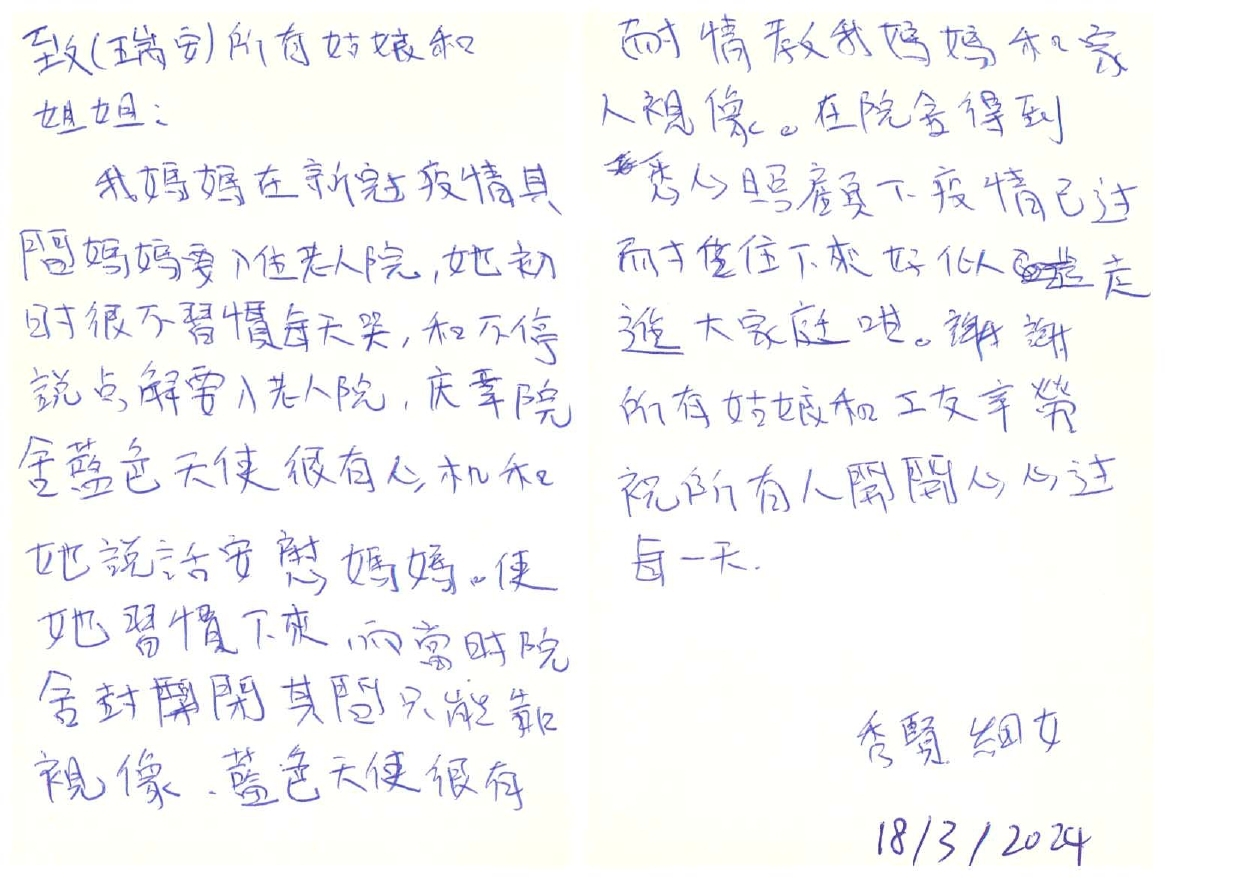 致(瑞安)所有姑娘和
姐姐:
我媽媽在新冠疫情其
間媽媽要入住老人院,她初
时很不習慣每天哭,和不停
說点解要入老人院,庆幸院
舍藍色天使很有心机和
她說話安慰媽媽。使
她習慣下來,而當时院
舍封關閉其間只能靠
視像、藍色天使很有
耐情教我媽媽和家
人視像。在院舍得到
悉心照顧下疫情已过
而才住下來好似走
進大家庭咁。謝謝
所有姑娘和工友辛勞
祝所有人開開心心过
每一天.
秀賢 細女
18/3/2024